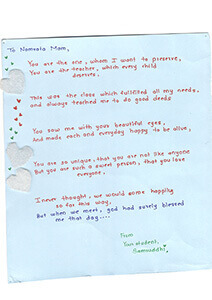 To Namrata Mam,
You are the one, whom I want to preserve,
You are the teacher, which every child
deserves.
This was the class which fulfilled all my needs,
and always taught me to do good deeds
You saw me with your beautiful eyes,
And made each and everyday happy to be alive,
You are so unique, that you are not like anyone
But you are such a sweet person, that you love
everyone,
I never thought, we would some happily
so far this way,
But when we meet, god had surely blessed
me that day....
From
Your student,
Samruddhi